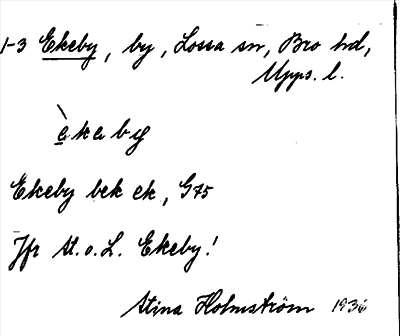 1-3 Ekeby, by, Lossa sn, Bro hd,
Upps. l.
èkeby
Ekeby bek ek, G75
Jfr St. o. L. Ekeby!
Stina Holmström 1936